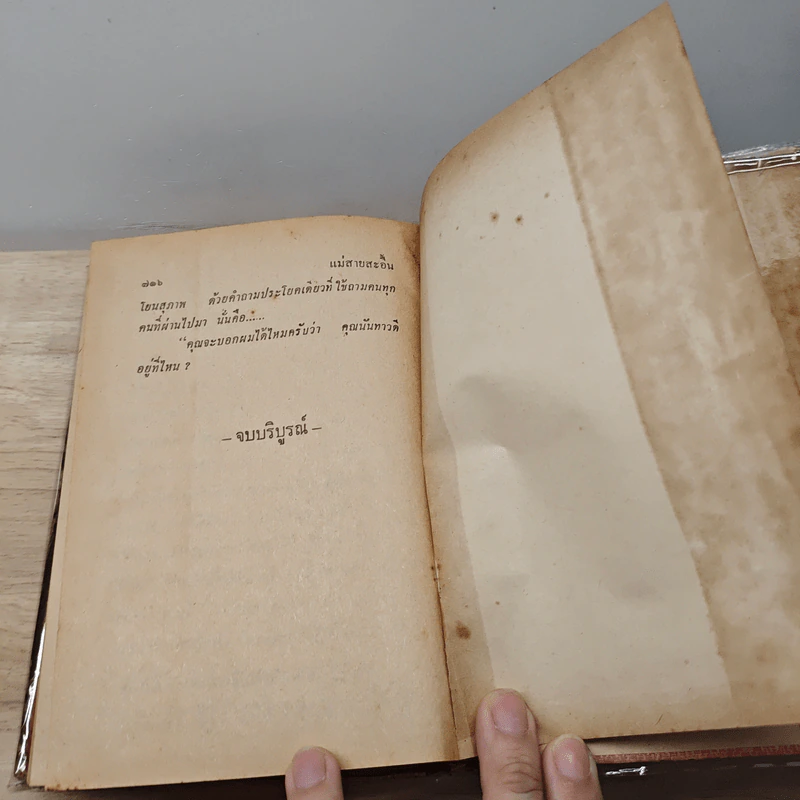 แม่สายสะอื้น
๗๑๖
โยนสุภาพ ด้วยคำถามประโยคเดียวที่ใช้ถามคนทุก
คนที่ผ่านไปมา นั่นคือ.....
“คุณจะบอกผมได้ไหมครับว่า คุณนันทาวดี
อยู่ที่ไหน ?
– จบบริบูรณ์ –